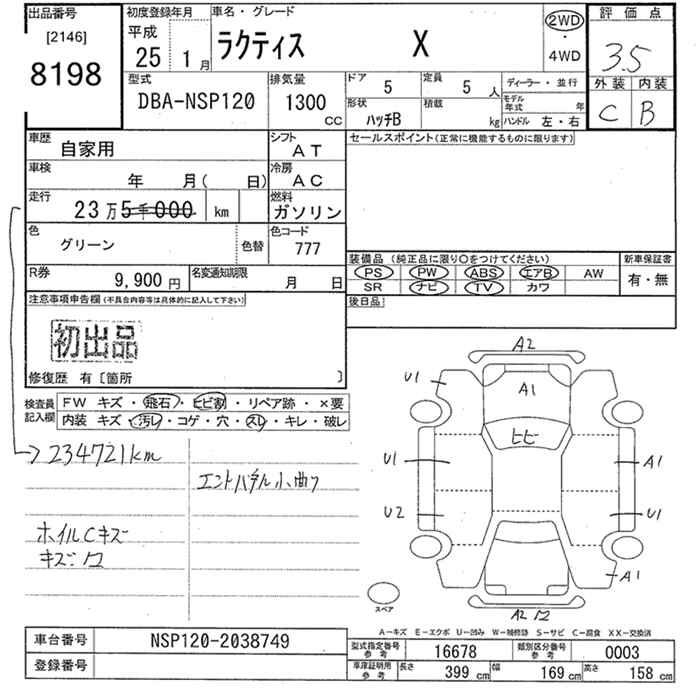 出品番号
[2146]
8198
初度登録年月
平成
25 1月
車名・グレード
ラクティス X
2WD
・
4WD
評価点
3.5
外装 内装
C B
型式
DBA-NSP120
排気量
1300 CC
ドア 5
定員 5 人
形状 ハッチB
積載 kg
ディーラー・並行
モデル年式 年
ハンドル 左・右
車歴 自家用
シフト AT
車検 年 月( 日)
冷房 AC
走行 23万5千000 km
燃料 ガソリン
色 グリーン 色替
色コード 777
R券 9,900円
名変通知期限 月 日
セールスポイント(正常に機能するものに限ります)
装備品(純正品に限り○をつけてください)
PS PW ABS エアB AW
SR ナビ TV カワ
新車保証書
有・無
後日品
注意事項申告欄(不具合内容等は具体的に記入して下さい)
初出品
修復歴 有〔箇所 〕
検査員記入欄
FW キズ・飛石・ヒビ割・リペア跡・×要
内装 キズ・汚レ・コゲ・穴・スレ・キレ・破レ
→234721km
ホイルCキズ
エントパネル小曲り
A2
U1
A1
ヒビ
U1
A1
U2
U1
A1
スペア
A2
A-キズ E-エクボ U-凹み W-補修跡 S-サビ C-腐食 XX-交換済
車台番号 NSP120-2038749
登録番号
型式指定番号 参考 16678
類別区分番号 参考 0003
車庫証明用 参考 長さ 399 cm 幅 169 cm 高さ 158 cm